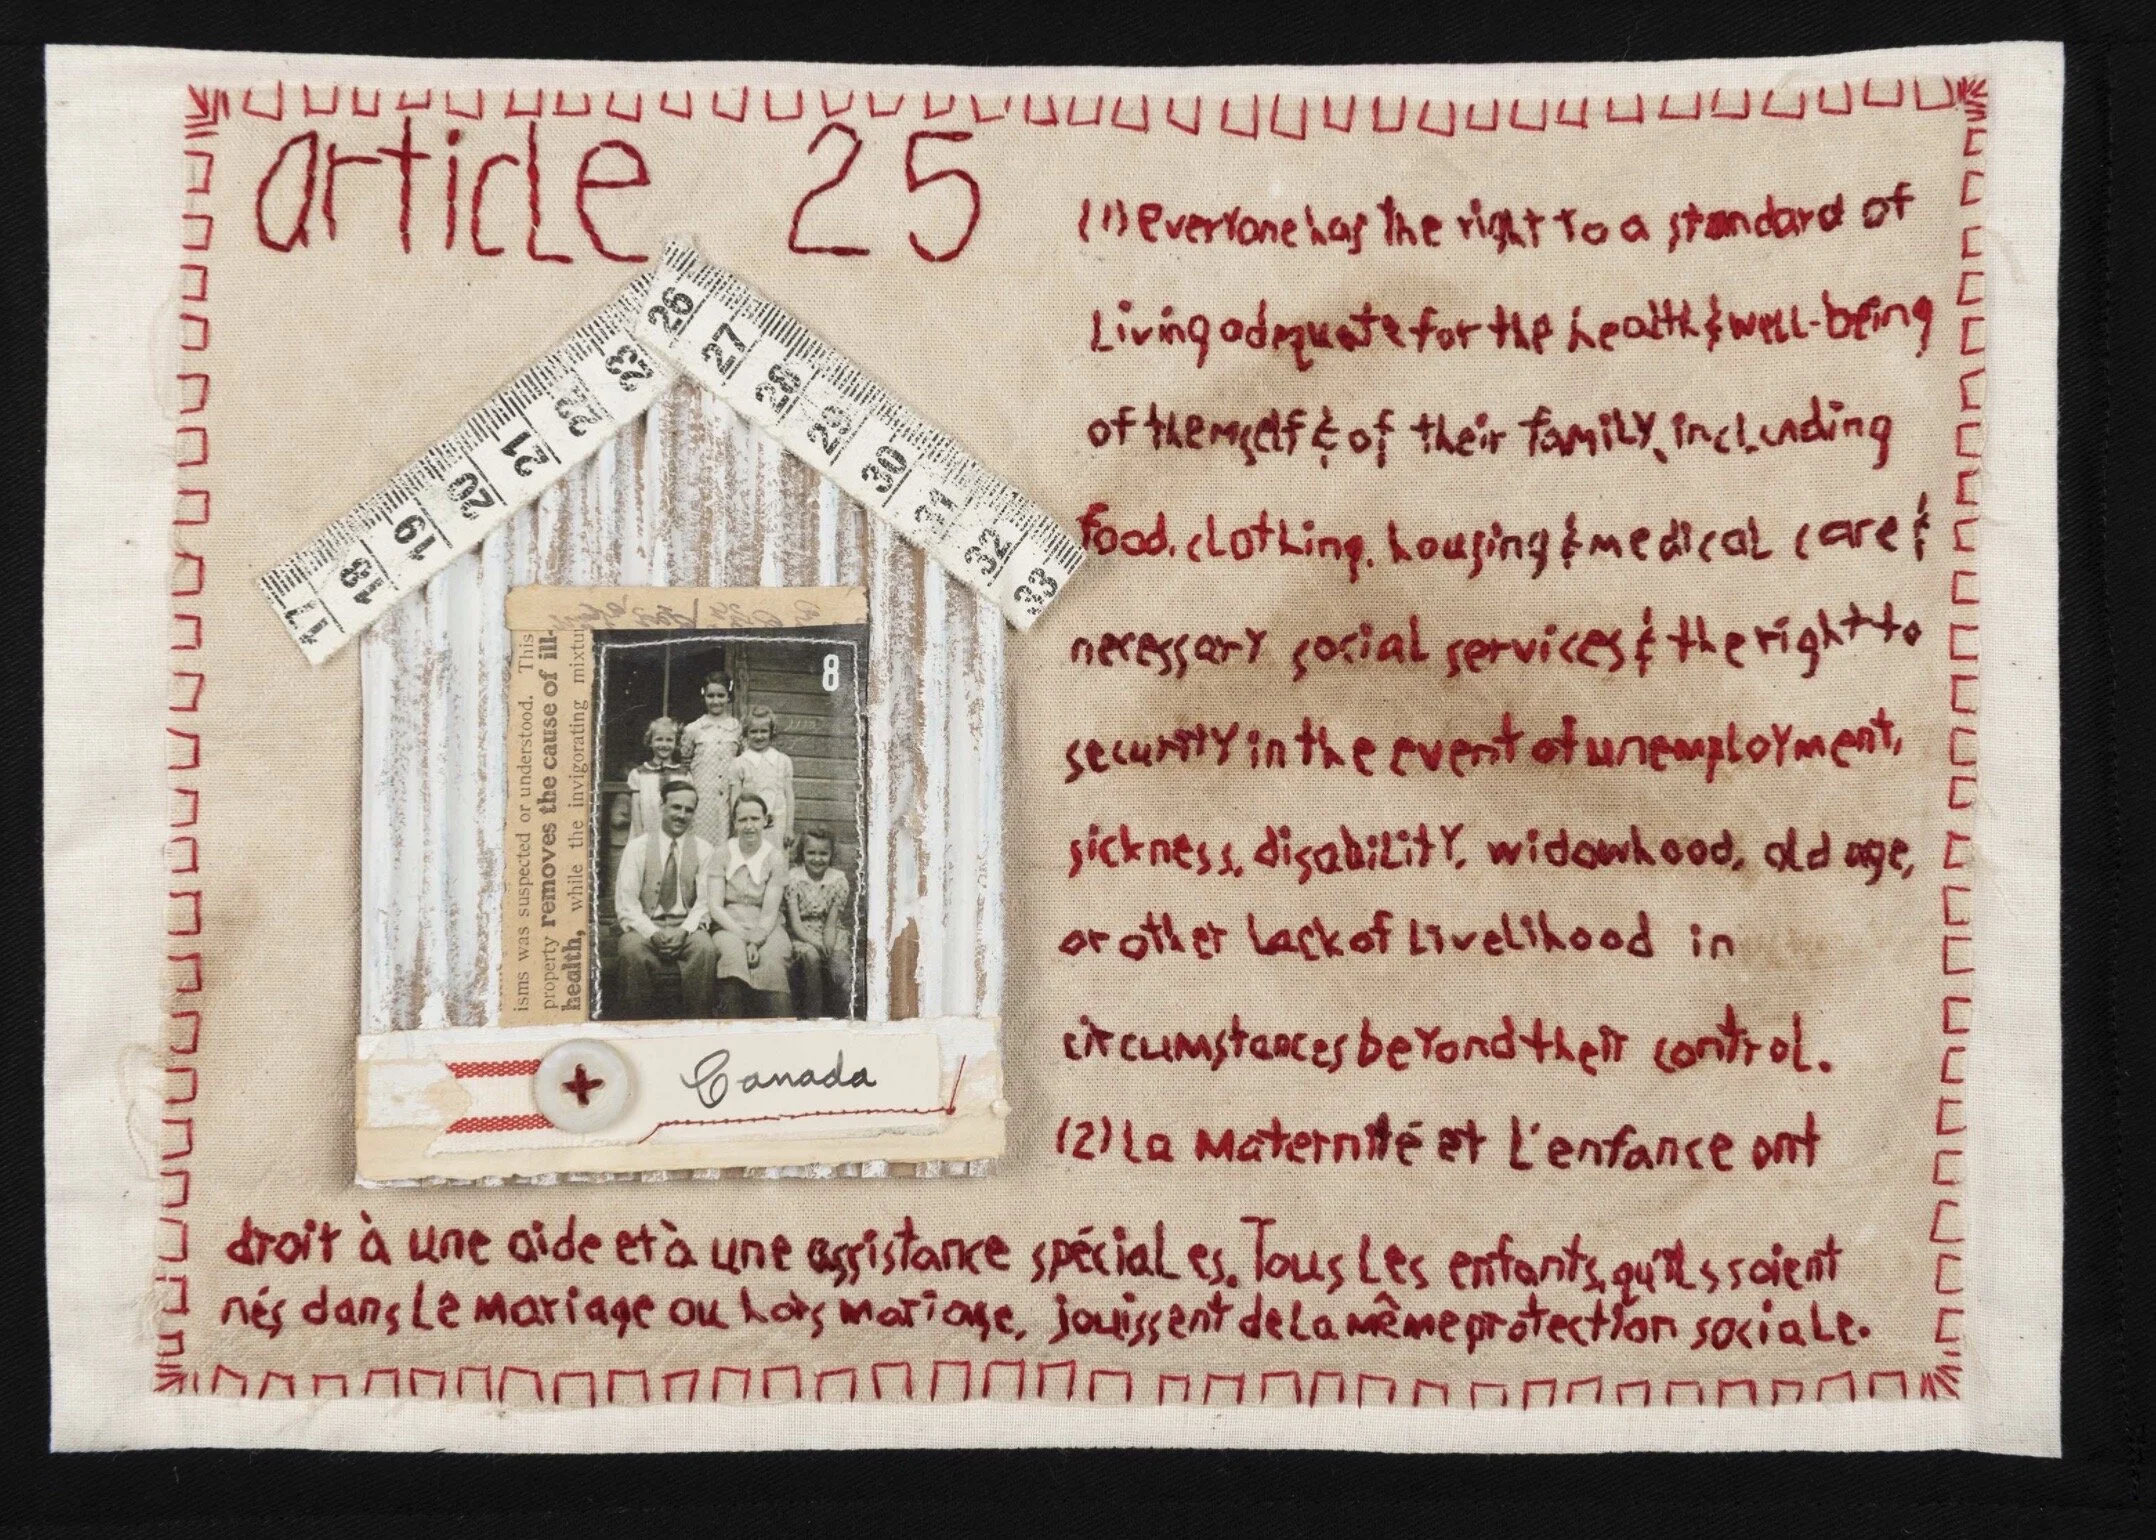 article 25
(1) everyone has the right to a standard of
living adequate for the health & well-being
of themself & of their family, including
food, clothing, housing & medical care &
necessary social services & the right to
security in the event of unemployment,
sickness, disability, widowhood, old age,
or other lack of livelihood in
circumstances beyond their control.
(2) La maternité et l'enfance ont
droit à une aide et à une assistance spéciales. Tous les enfants, qu'ils soient
nés dans le mariage ou hors mariage, jouissent de la même protection sociale.
17 18 19 20 21 22 23
26 27 28 29 30 31 32 33
isms was suspected or understood. This
property removes the cause of ill-
health, while the invigorating mixtu
8
Canada